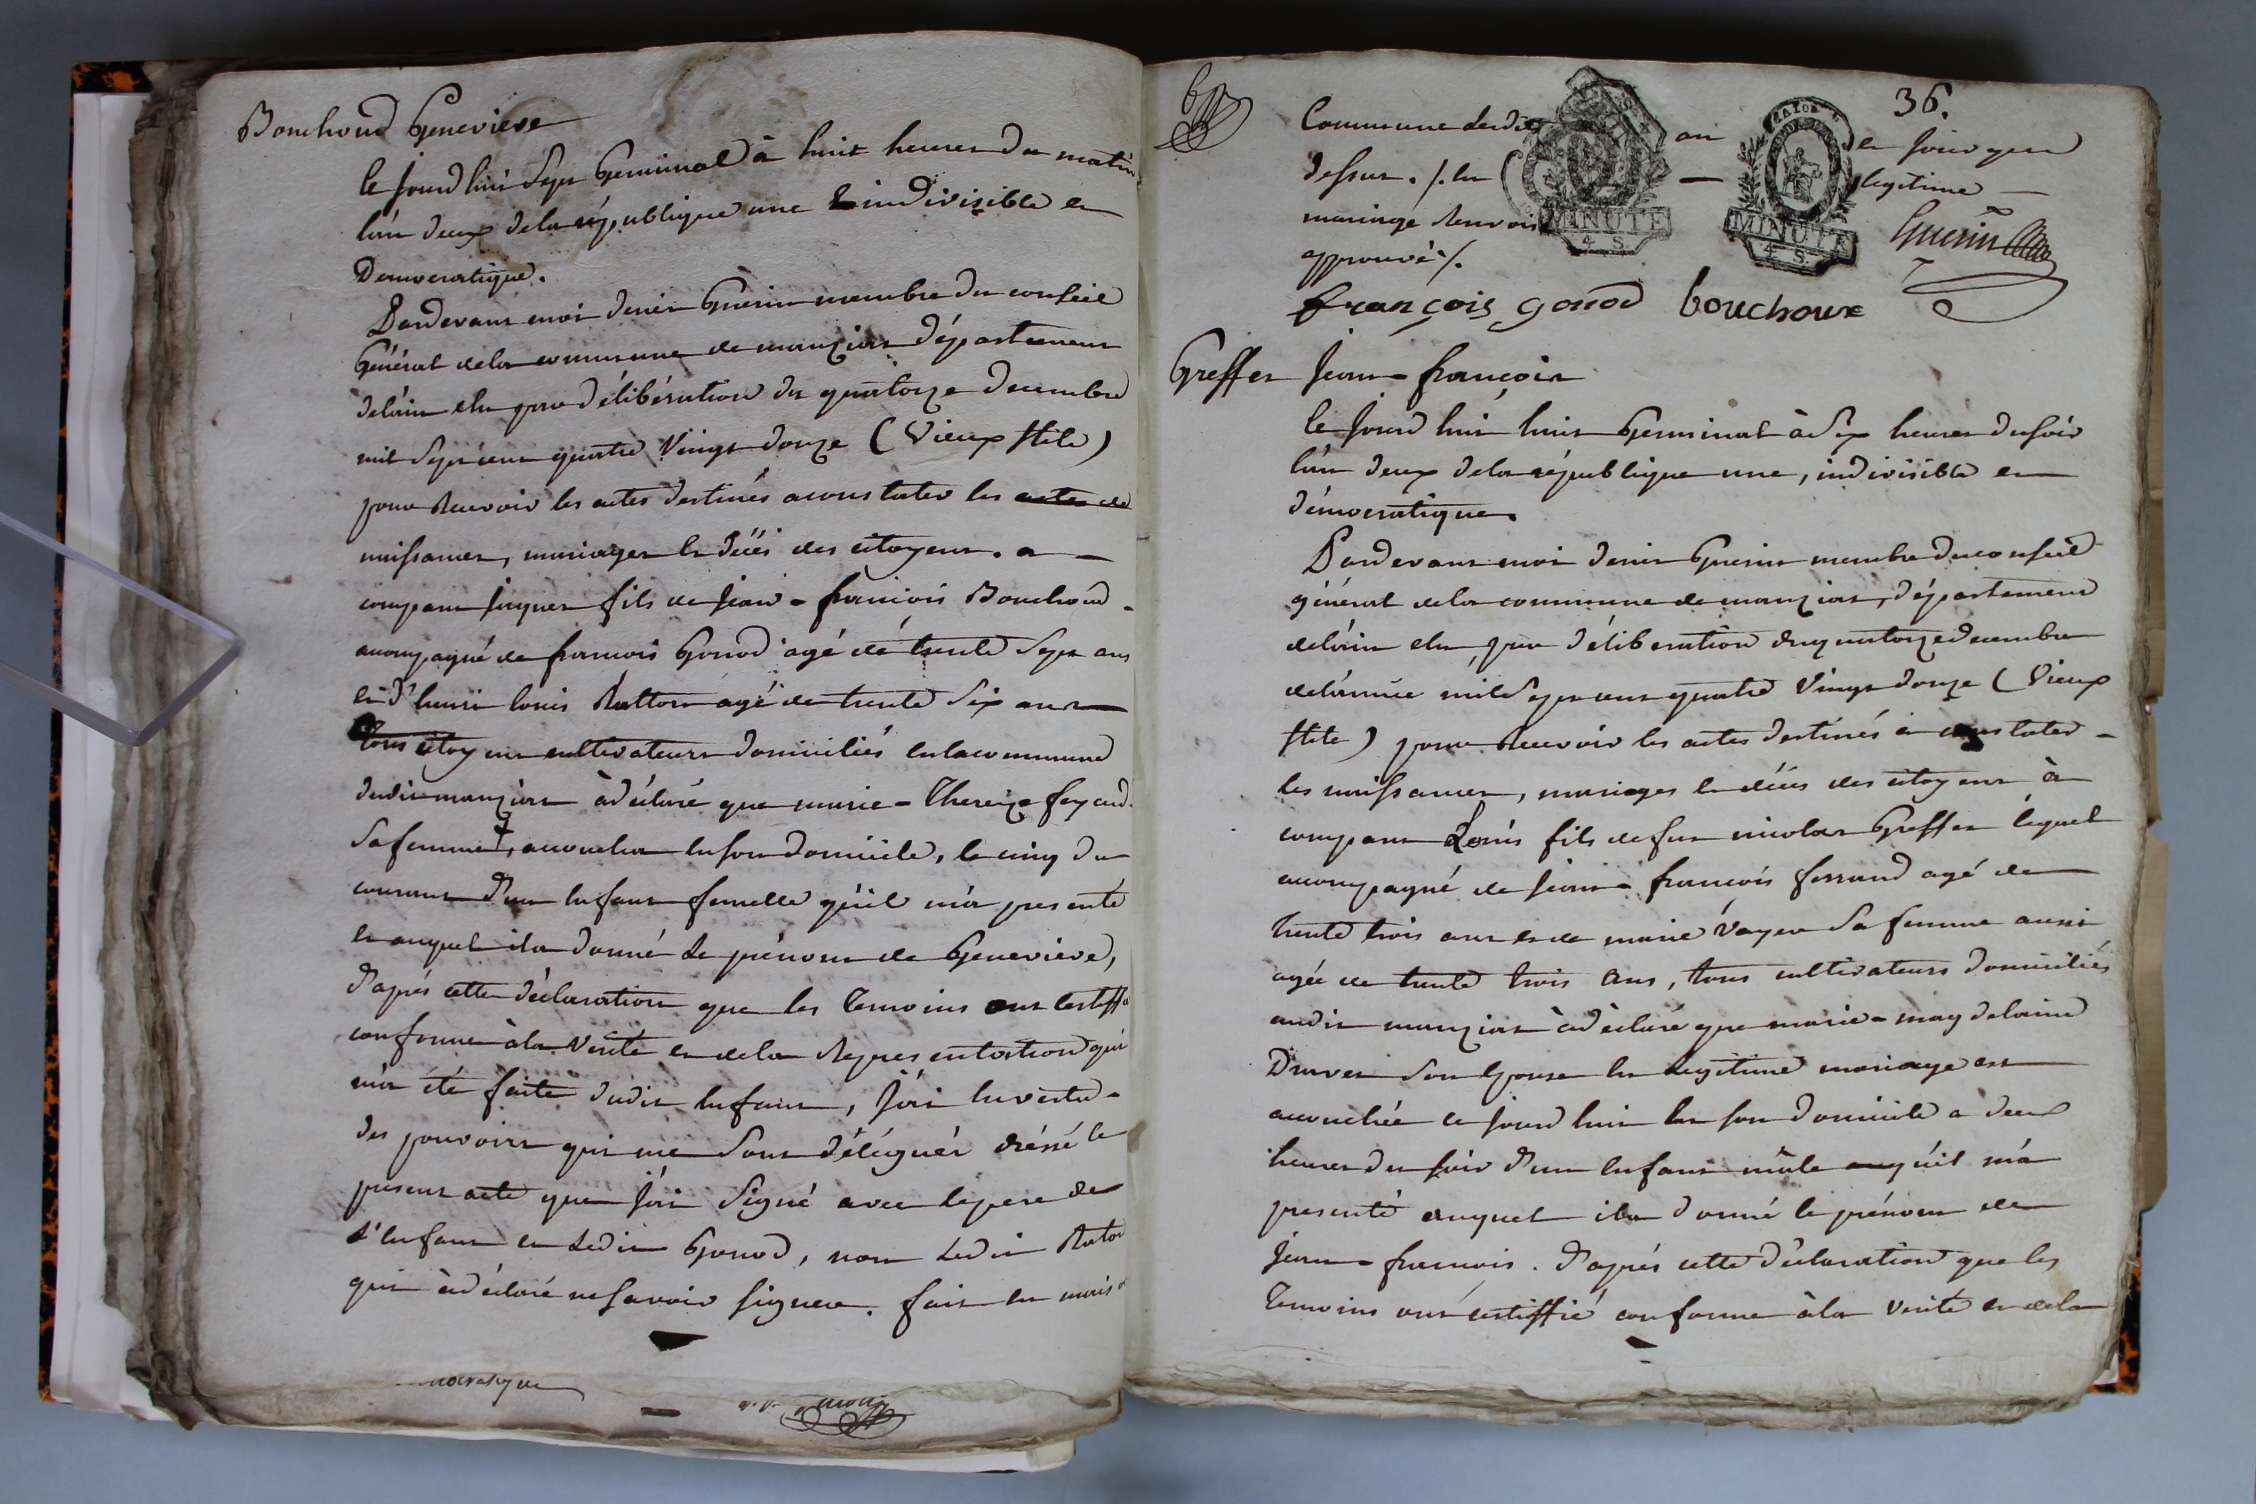 Bouchoud Genevieve
le jourd'hui sept Germinal à huit heures du matin
l'an deux de la république une & indivisible et
Democratique.
Pardevant moi denis Guerin membre du conseil
Général de la commune de manziat département
de l'ain elu par déliberation du quatorze decembre
mil sept cent quatre vingt douze (vieux stile)
pour recevoir les actes destinés a constater les actes de
naissances, mariages et décès des citoyens. a —
comparu jaques fils de jean-francois Bouchoud -
accompagné de francois Gonod agé de trente sept ans
et d'henri louis Ratton agé de trente six ans —
tous citoyens cultivateurs domiciliés en la commune
dudit manziat à déclaré que marie-Thereze feyard
sa femme + accouchée en son domicile, le cinq du
courant d'un enfant femelle qu'il m'a presenté
et auquel il a donné le prénom de Genevieve,
d'après cette déclaration que les temoins ont certiffié
conforme à la verité et de la representation qui
m'a été faite dudit enfant, j'ai en vertu -
des pouvoirs qui me sont délégués dréssé le
present acte que j'ai signé avec le pere de
l'enfant et ledit Gonod, non ledit Raton
qui à déclaré ne savoir signer. fait en mais
36.
Commune ledit an et jour que
dessus. /. en — legitime —
mariage renvoi
approuvé /.
MINUTE
4 S.
MINUTE
4 S.
Guerin
françois gonod bouchoux
Greffet Jean-francois
le jourd'hui huit Germinal à six heures du soir
l'an deux de la république une, indivisible et
démocratique.
Pardevant moi denis Guerin membre du conseil
général de la commune de manziat, département
de l'ain elu par déliberation du quatorze decembre
de l'année mil sept cent quatre vingt douze (vieux
stile) pour recevoir les actes destinés à constater -
les naissances, mariages et décès des citoyens à
comparu Louis fils de feu nicolas Greffet lequel
accompagné de jean-francois ferrand agé de
trente trois ans et de marie vayer sa femme aussi
agée de trente trois ans, tous cultivateurs domiciliés
audit manziat à déclaré que marie-magdelaine
son epouse en legitime mariage est
accouchée ce jourd'hui en son domicile a deux
heures du soir d'un enfant mâle qu'il m'a
presenté auquel il a donné le prénom de
jean-francois. d'après cette déclaration que les
temoins ont certiffié conforme à la verité et de la